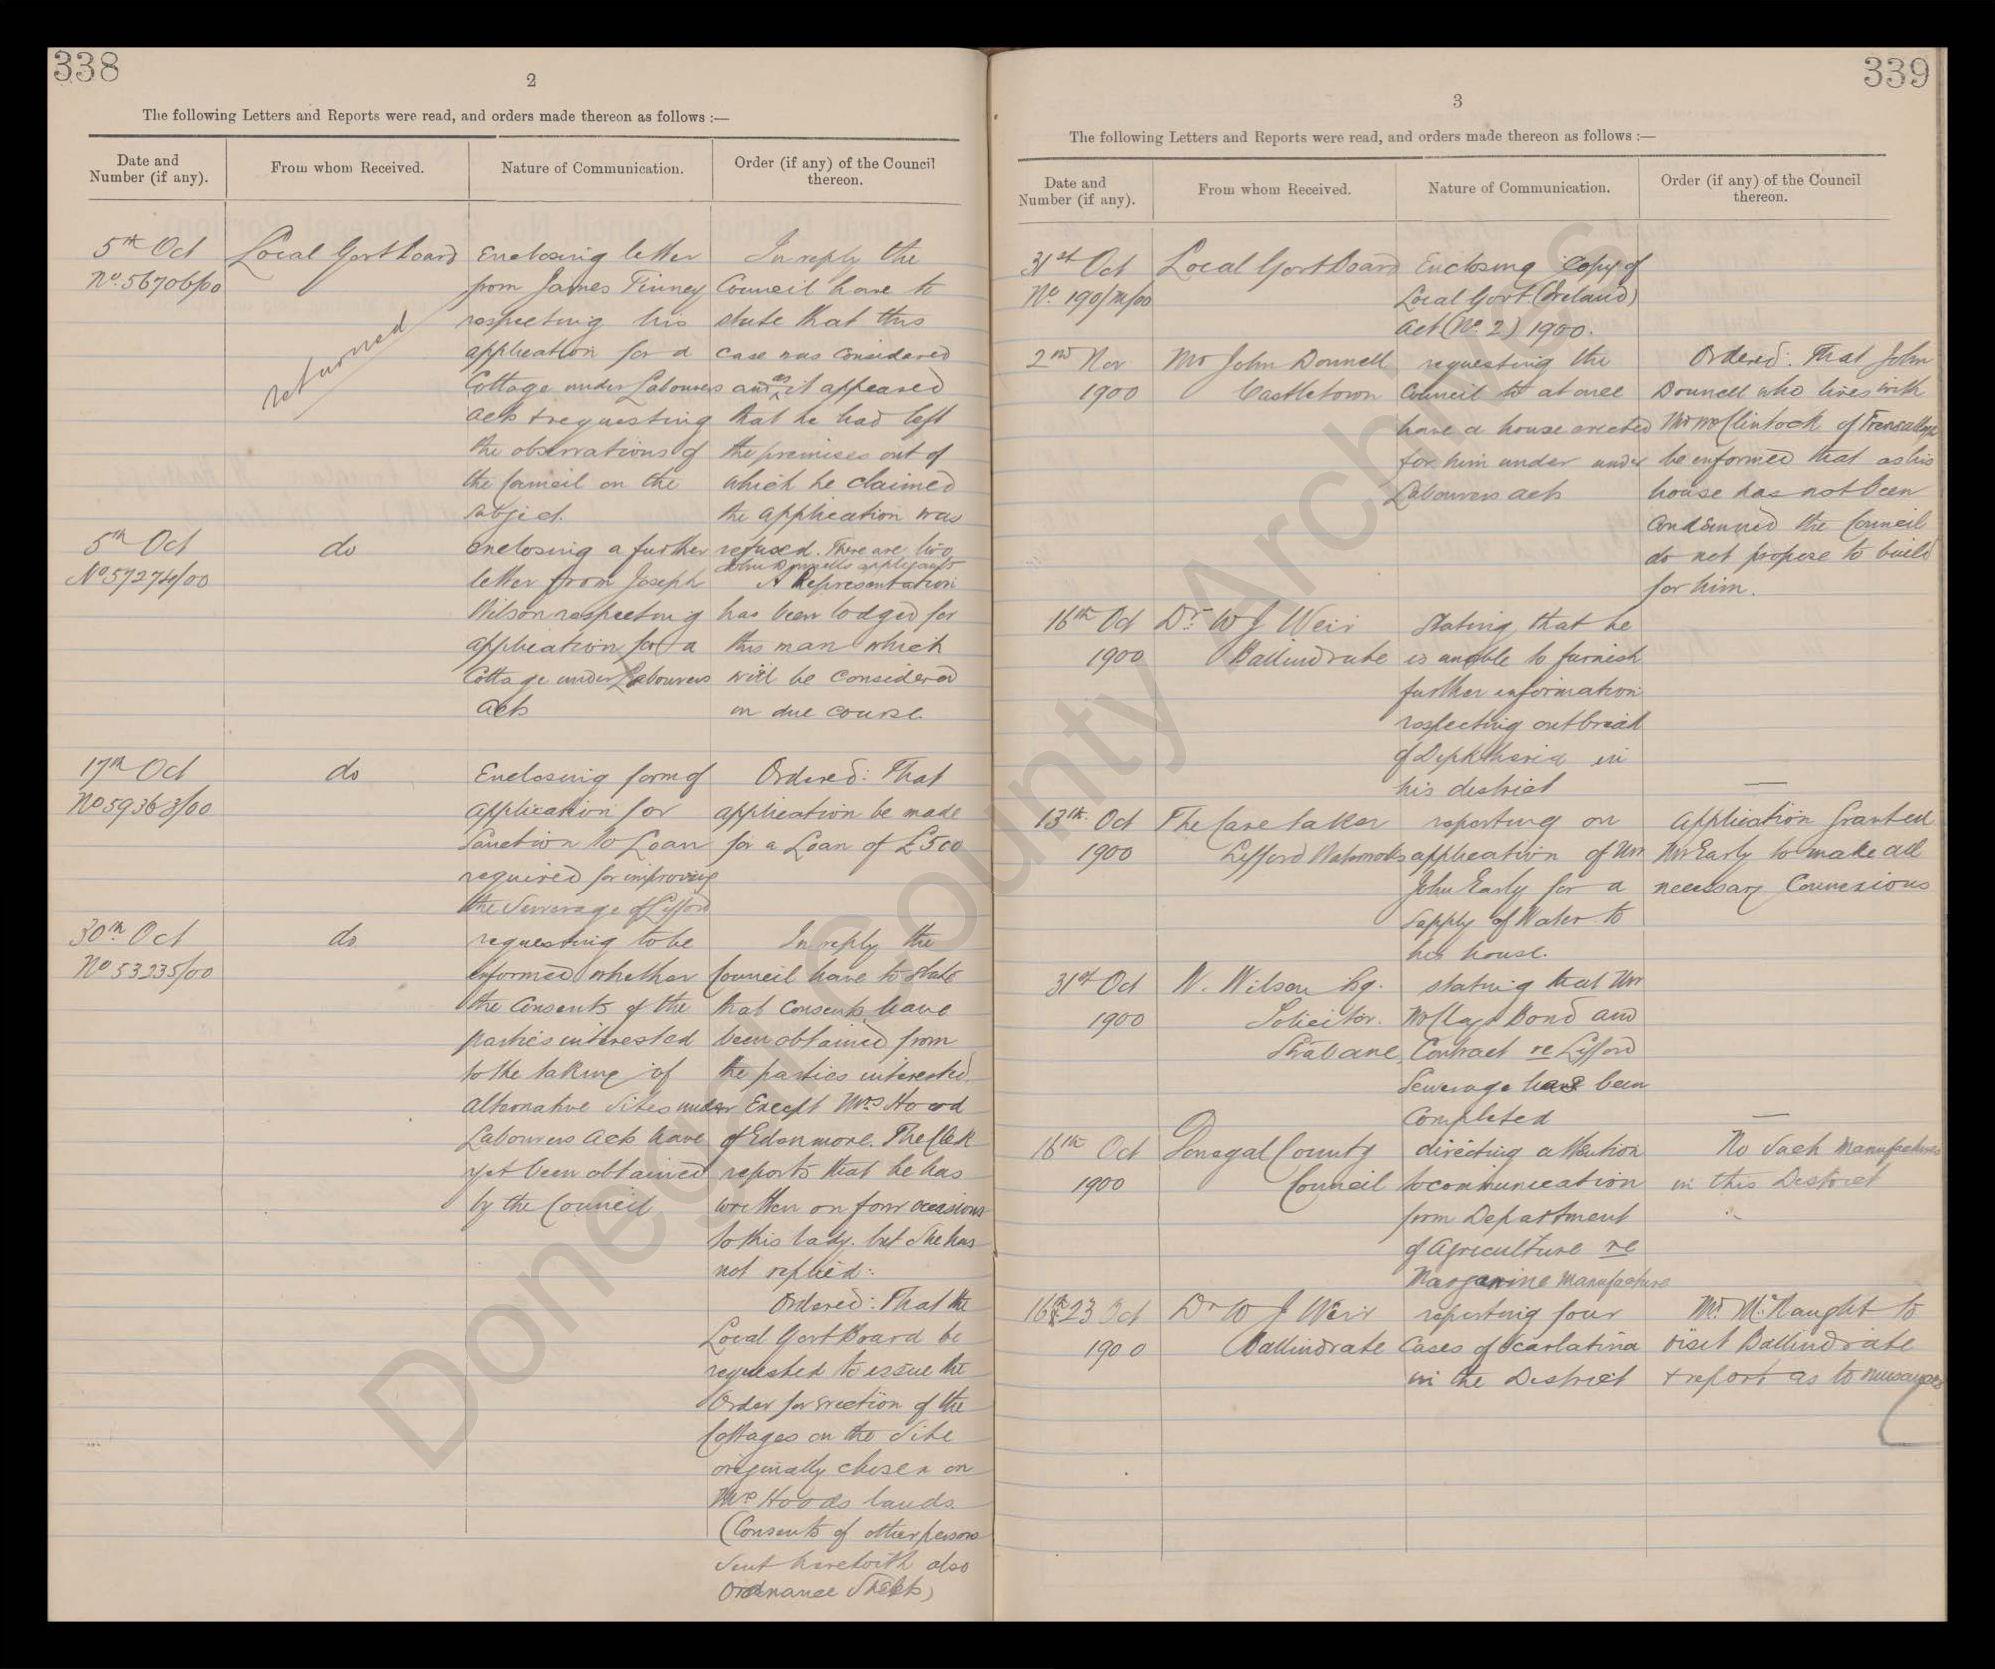 338
2
The following Letters and Reports were read, and orders made thereon as follows :—
Date and
Number (if any).
From whom Received.
Nature of Communication.
Order (if any) of the Council
thereon.
5th Oct
No. 56706/00
Local Govt Board
returned
Enclosing letter
from James Finney
respecting his
application for a
Cottage under Labourers
acts & requesting
the observations of
the Council on the
subject.
In reply the
Council have to
state that this
case was considered
and as it appeared
that he had left
the premises out of
which he claimed
the application was
refused. There are two
John Donnells applicants
5th Oct
No 57274/00
do
enclosing a further
letter from Joseph
Wilson respecting
application for a
Cottage under Labourers
acts
A Representation
has been lodged for
this man which
will be considered
in due course.
17th Oct
No 59363/00
do
Enclosing form of
application for
Sanction to Loan
required for improving
the Sewerage of Lifford
Ordered: That
application be made
for a Loan of £500
30th Oct
No 53235/00
do
requesting to be
informed whether
the Consents of the
parties interested
to the taking of
alternative Sites under
Labourers Acts have
yet been obtained
by the Council
In reply the
Council have to state
that consents have
been obtained from
the parties interested
Except Mrs Hood
of Edenmore. The Clerk
reports that he has
written on four occasions
to this lady. but She has
not replied:
Ordered: That the
Local Govt Board be
requested to issue the
Order for erection of the
Cottages on the Site
originally chosen on
Mrs Hoods lands.
(Consents of other persons
sent herewith also
Ordnance Sheets)
339
3
The following Letters and Reports were read, and orders made thereon as follows :—
Date and
Number (if any).
From whom Received.
Nature of Communication.
Order (if any) of the Council
thereon.
31st Oct
No 190/M/00
Local Govt Board
Enclosing Copy of
Local Govt. (Ireland)
Act (No. 2) 1900.
2nd Nov
1900
Mr John Donnell
Castletown
requesting the
Council to at once
have a house erected
for him under under
Labourers acts
Ordered: That John
Donnell who lives with
Mr McClintock of
be informed that as his
house has not been
Condemned the Council
do not propose to build
for him.
16th Oct
1900
Dr. W J Weir
Ballindrate
Stating that he
is unable to furnish
further information
respecting outbreak
of Diphtheria in
his district
—
13th. Oct
1900
The Caretaker
Lifford Waterworks
reporting on
application of Mr
John Early for a
Supply of Water to
his house.
Application Granted
Mr Early to make all
necessary Connexions
31st Oct
1900
W. Wilson Esq.
Solicitor.
Strabane
stating that Mr
Bond and
Contract re Lifford
Sewerage have been
Completed
—
16th Oct
1900
Donegal County
Council
directing attention
to communication
from Department
of Agriculture re
Margarine manufacture
No Such Manufactures
in this District
16th & 23 Oct
1900
Dr W J Weir
Ballindrate
reporting four
Cases of Scarlatina
in the District
Mr. McNaught to
visit Ballindrate
& report as to nuisances
Donegal County Archives